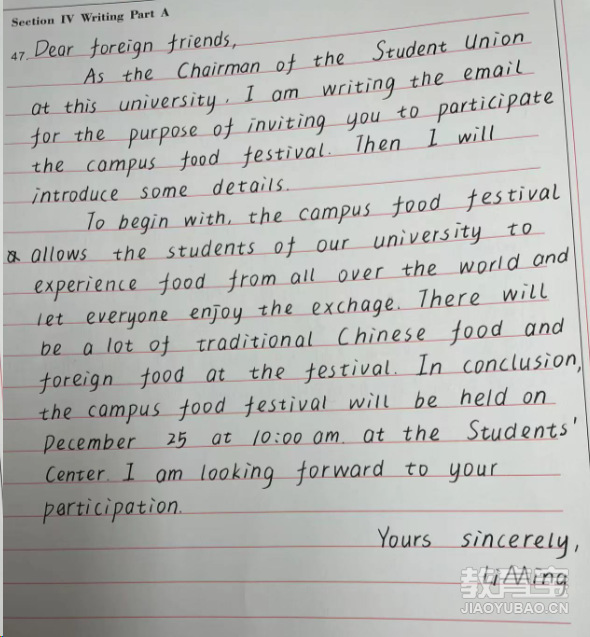 Section IV Writing Part A
47. Dear foreign friends,
As the Chairman of the Student Union
at this university, I am writing the email
for the purpose of inviting you to participate
the campus food festival. Then I will
introduce some details.
To begin with, the campus food festival
allows the students of our university to
experience food from all over the world and
let everyone enjoy the exchage. There will
be a lot of traditional Chinese food and
foreign food at the festival. In conclusion,
the campus food festival will be held on
December 25 at 10:00 am. at the Students'
Center. I am looking forward to your
participation.
Yours sincerely,
Li Ming
教育宝
JIAOYUBAO.CN